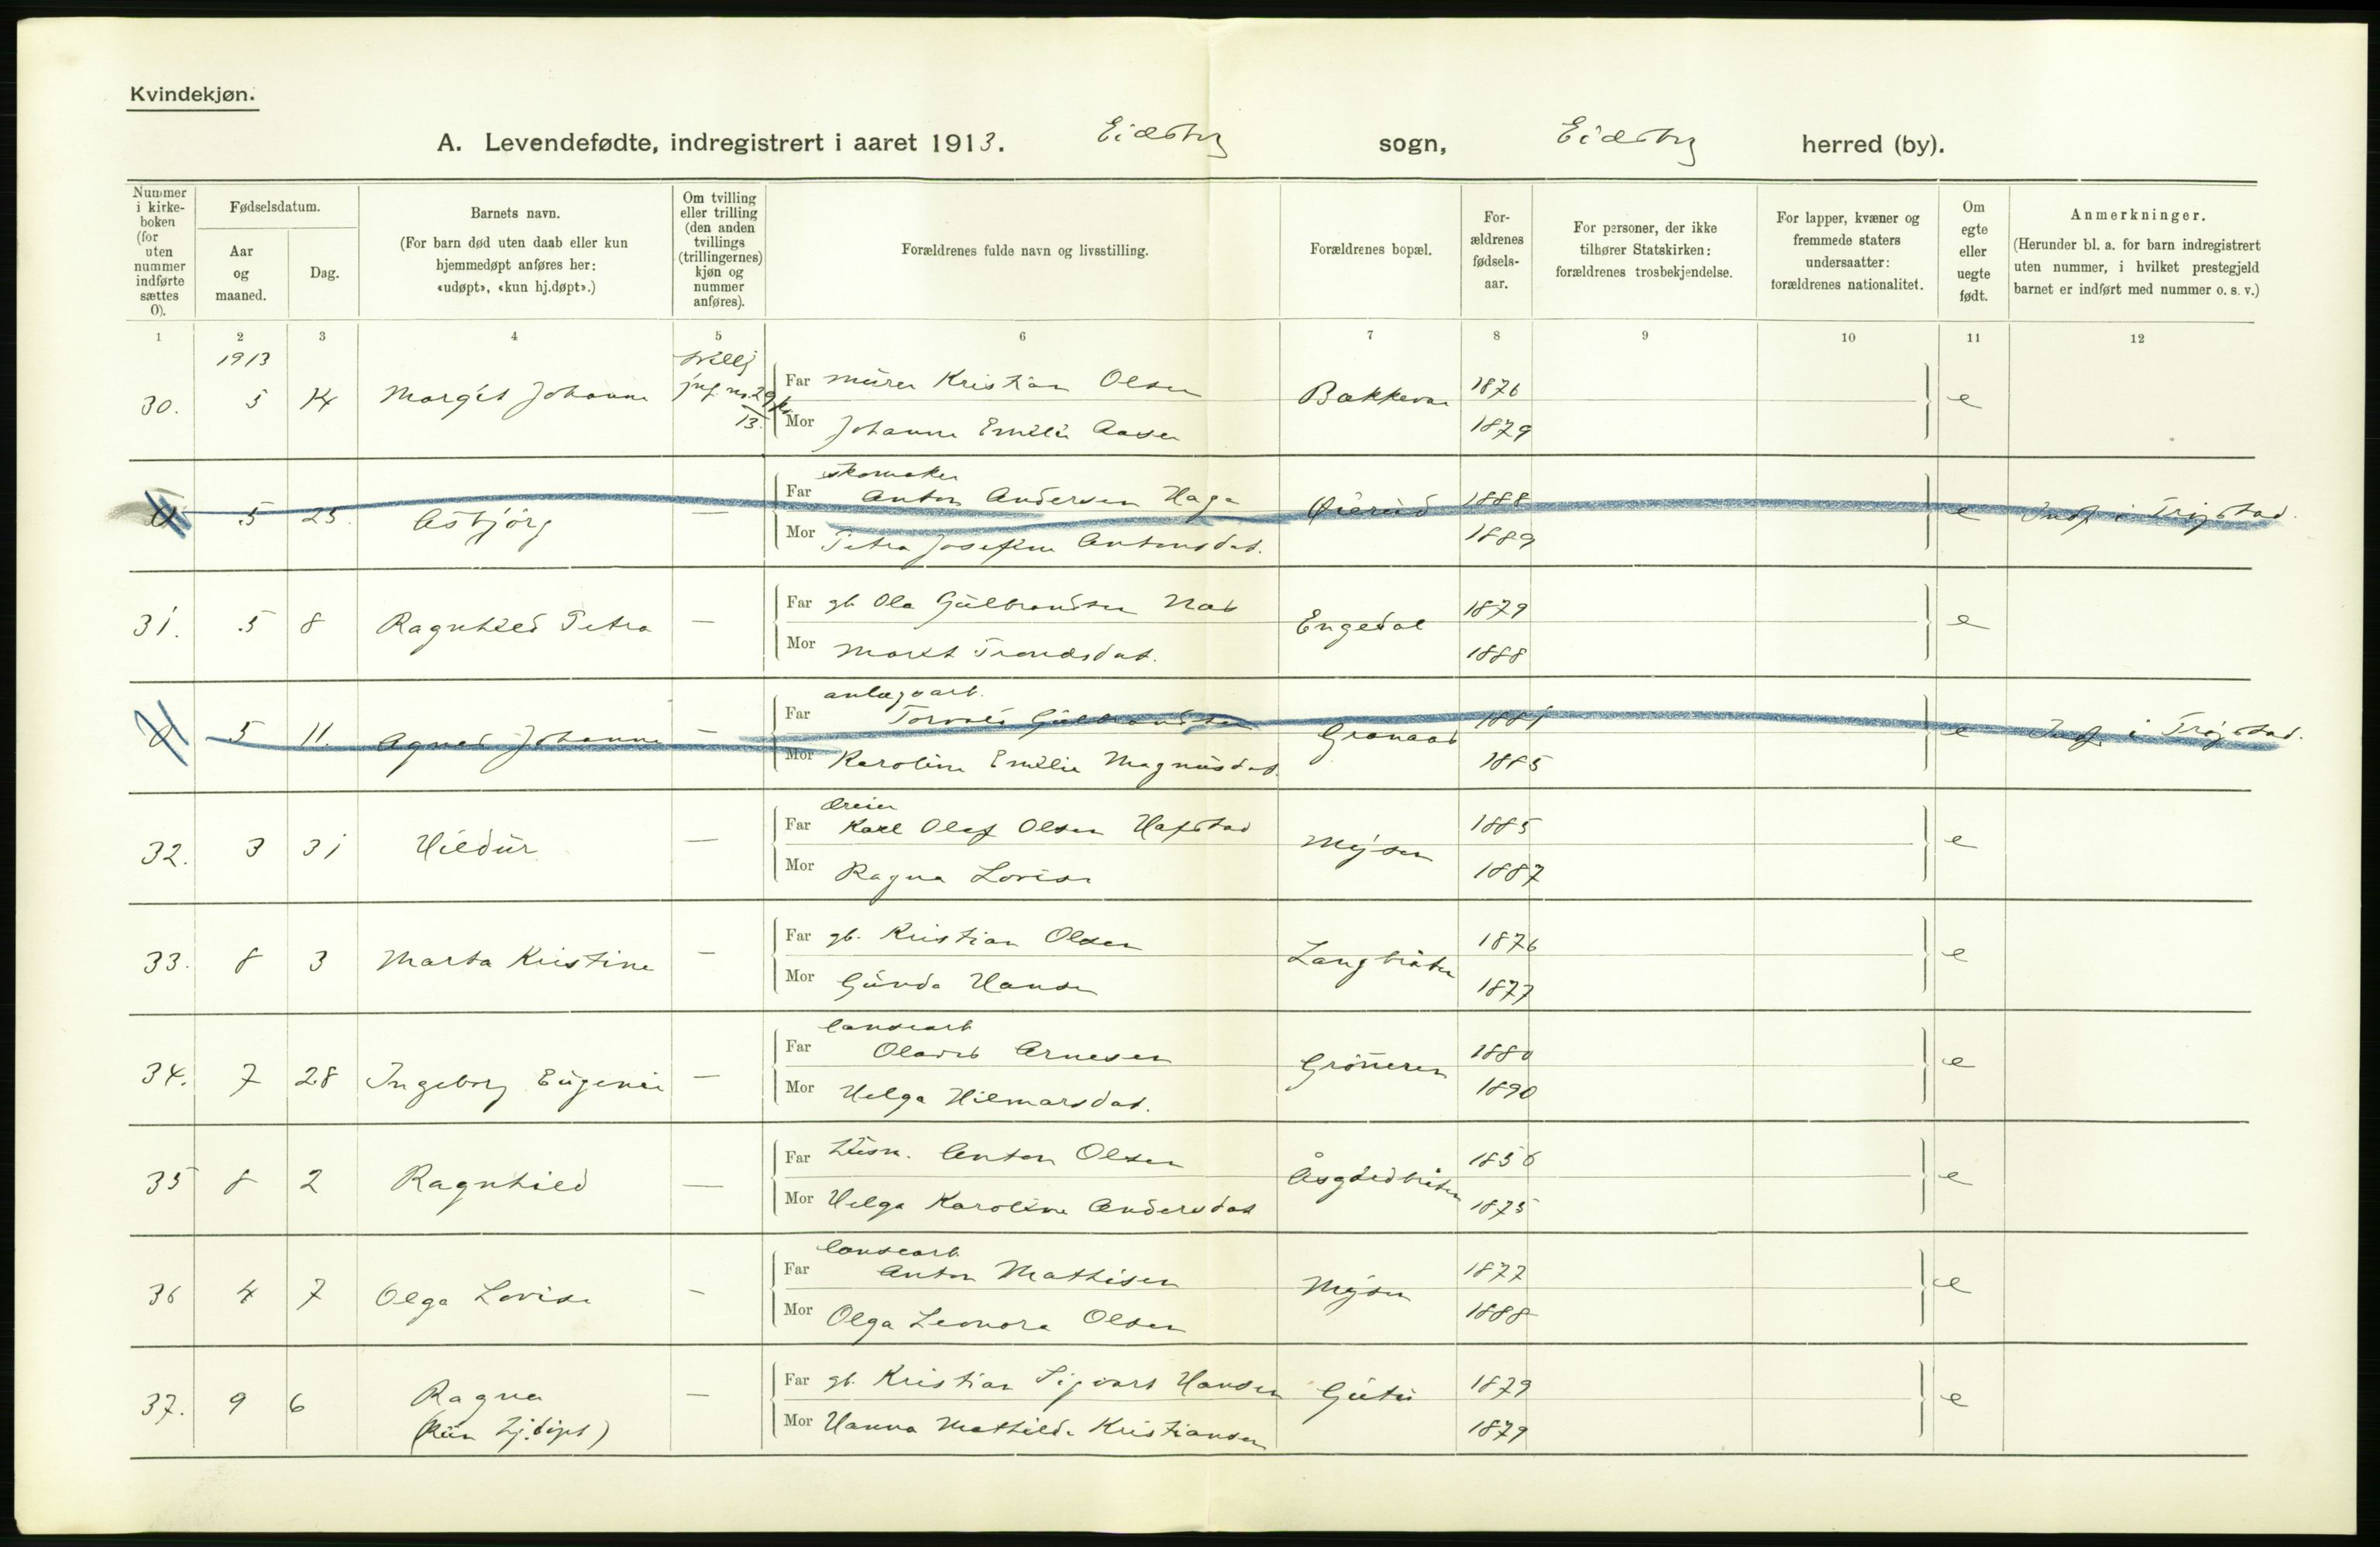 Kvindekjøn.
A. Levendefødte, indregistrert i aaret 1913. Eidsberg sogn, Eidsberg herred (by).
Nummer i kirke-boken (for uten nummer indførte sættes 0).
Fødselsdatum.
Aar og maaned.
Dag.
Barnets navn.
(For barn død uten daab eller kun hjemmedøpt anføres her: «udøpt», «kun hj.døpt».)
Om tvilling eller trilling (den anden tvillings (trillingernes) kjøn og nummer anføres).
Forældrenes fulde navn og livsstilling.
Forældrenes bopæl.
For-ældrenes fødsels-aar.
For personer, der ikke tilhører Statskirken: forældrenes trosbekjendelse.
For lapper, kvæner og fremmede staters undersaatter: forældrenes nationalitet.
Om egte eller uegte født.
Anmerkninger.
(Herunder bl. a. for barn indregistrert uten nummer, i hvilket prestegjeld barnet er indført med nummer o. s. v.)
1 2 3 4 5 6 7 8 9 10 11 12
1913
30. 5 14 Margit Johanne
Far murer Kristian Olsen 1876 e
Mor Johanne Emilie Aasen 1879
skomaker
5 25. Asbjörg — Far Anton Andersen Haga 1888 e Indf i Trögstad.
Mor Petra Josefine Antonsdat. 1889
31. 5 8 Ragnhild Petra — Far gb. Ole Gulbrandsen Engedal 1879 e
Mor Marit Trondsdat. 1888
anlægsarb.
5 11. Agnes Johanne — Far Torvald Gulbrandsen 1881 e Indf i Trögstad.
Mor Karoline Emilie Magnusdat. 1885
dreier
32. 3 31 Hildur — Far Karl Olaf Olsen Hafstad Mysen 1885 e
Mor Ragna Lovise 1887
33. 8 3 Marta Kristine — Far gb. Kristian Olsen Langbråten 1876 e
Mor Gunda Hansen 1877
34. 7 28 Ingeborg Eugenie — Far Olaves Arnesen 1880 e
Mor Helga Hilmarsdat. 1890
35 8 2 Ragnhild — Far husm. Anton Olsen 1856 e
Mor Helga Karoline Andersdat 1875
36 4 7 Olga Lovise — Far Anton Mathisen Mysen 1877 e
Mor Olga Leonora Olsen 1888
37. 9 6 Ragna — Far gb. Kristian Sigvart Hansen 1879 e
(Kun hj.døpt) Mor Hanna Mathilde Kristiansen 1879